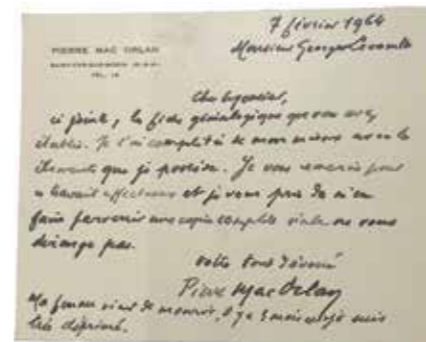 7 février 1964
PIERRE MAC ORLAN
Monsieur Georges
TEL. 18
Cher Monsieur,
ci jointe, la fiche généalogique que vous avez
établie. Je l'ai complétée de mon mieux avec les
éléments que je possède. Je vous remercie pour
ce travail affectueux et je vous prie de m'en
faire parvenir une copie complète si cela ne vous
dérange pas.
votre tout dévoué
Pierre Mac Orlan
Ma femme vient de mourir, il y a 3 mois et je suis
très déprimé.